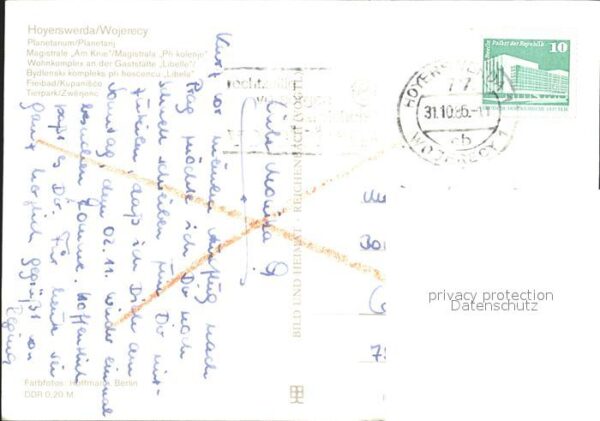 Hoyerswerda/Wojerecy
Planetarium/Planetarij
Magistrale „Am Knie"/Magistrala „Při kolenje"
Wohnkomplex an der Gaststätte „Libelle"/
Bydlenski kompleks při hosćencu „Libela"
Freibad/Kupanišćo
Tierpark/Zwěrjenc
Liebe Monika
Kurz vor meinem Ausflug nach
Prag möchte ich Dir noch
schreiben und Dir mit-
teilen, daß ich Dich am
Sonntag, dem 02.11. wieder einmal
besuchen komme. Hoffentlich
paßt es Dir. Für heute sei
ganz herzlich gegrüßt von
Regina
Farbfotos: Hoffmann, Berlin
DDR 0,20 M
BILD UND HEIMAT · REICHENBACH (VOGTL)
HOYERSWERDA 1
77
31.10.86.-11
cb
WOJERECY 1
Palast der Republik
10
privacy protection
Datenschutz